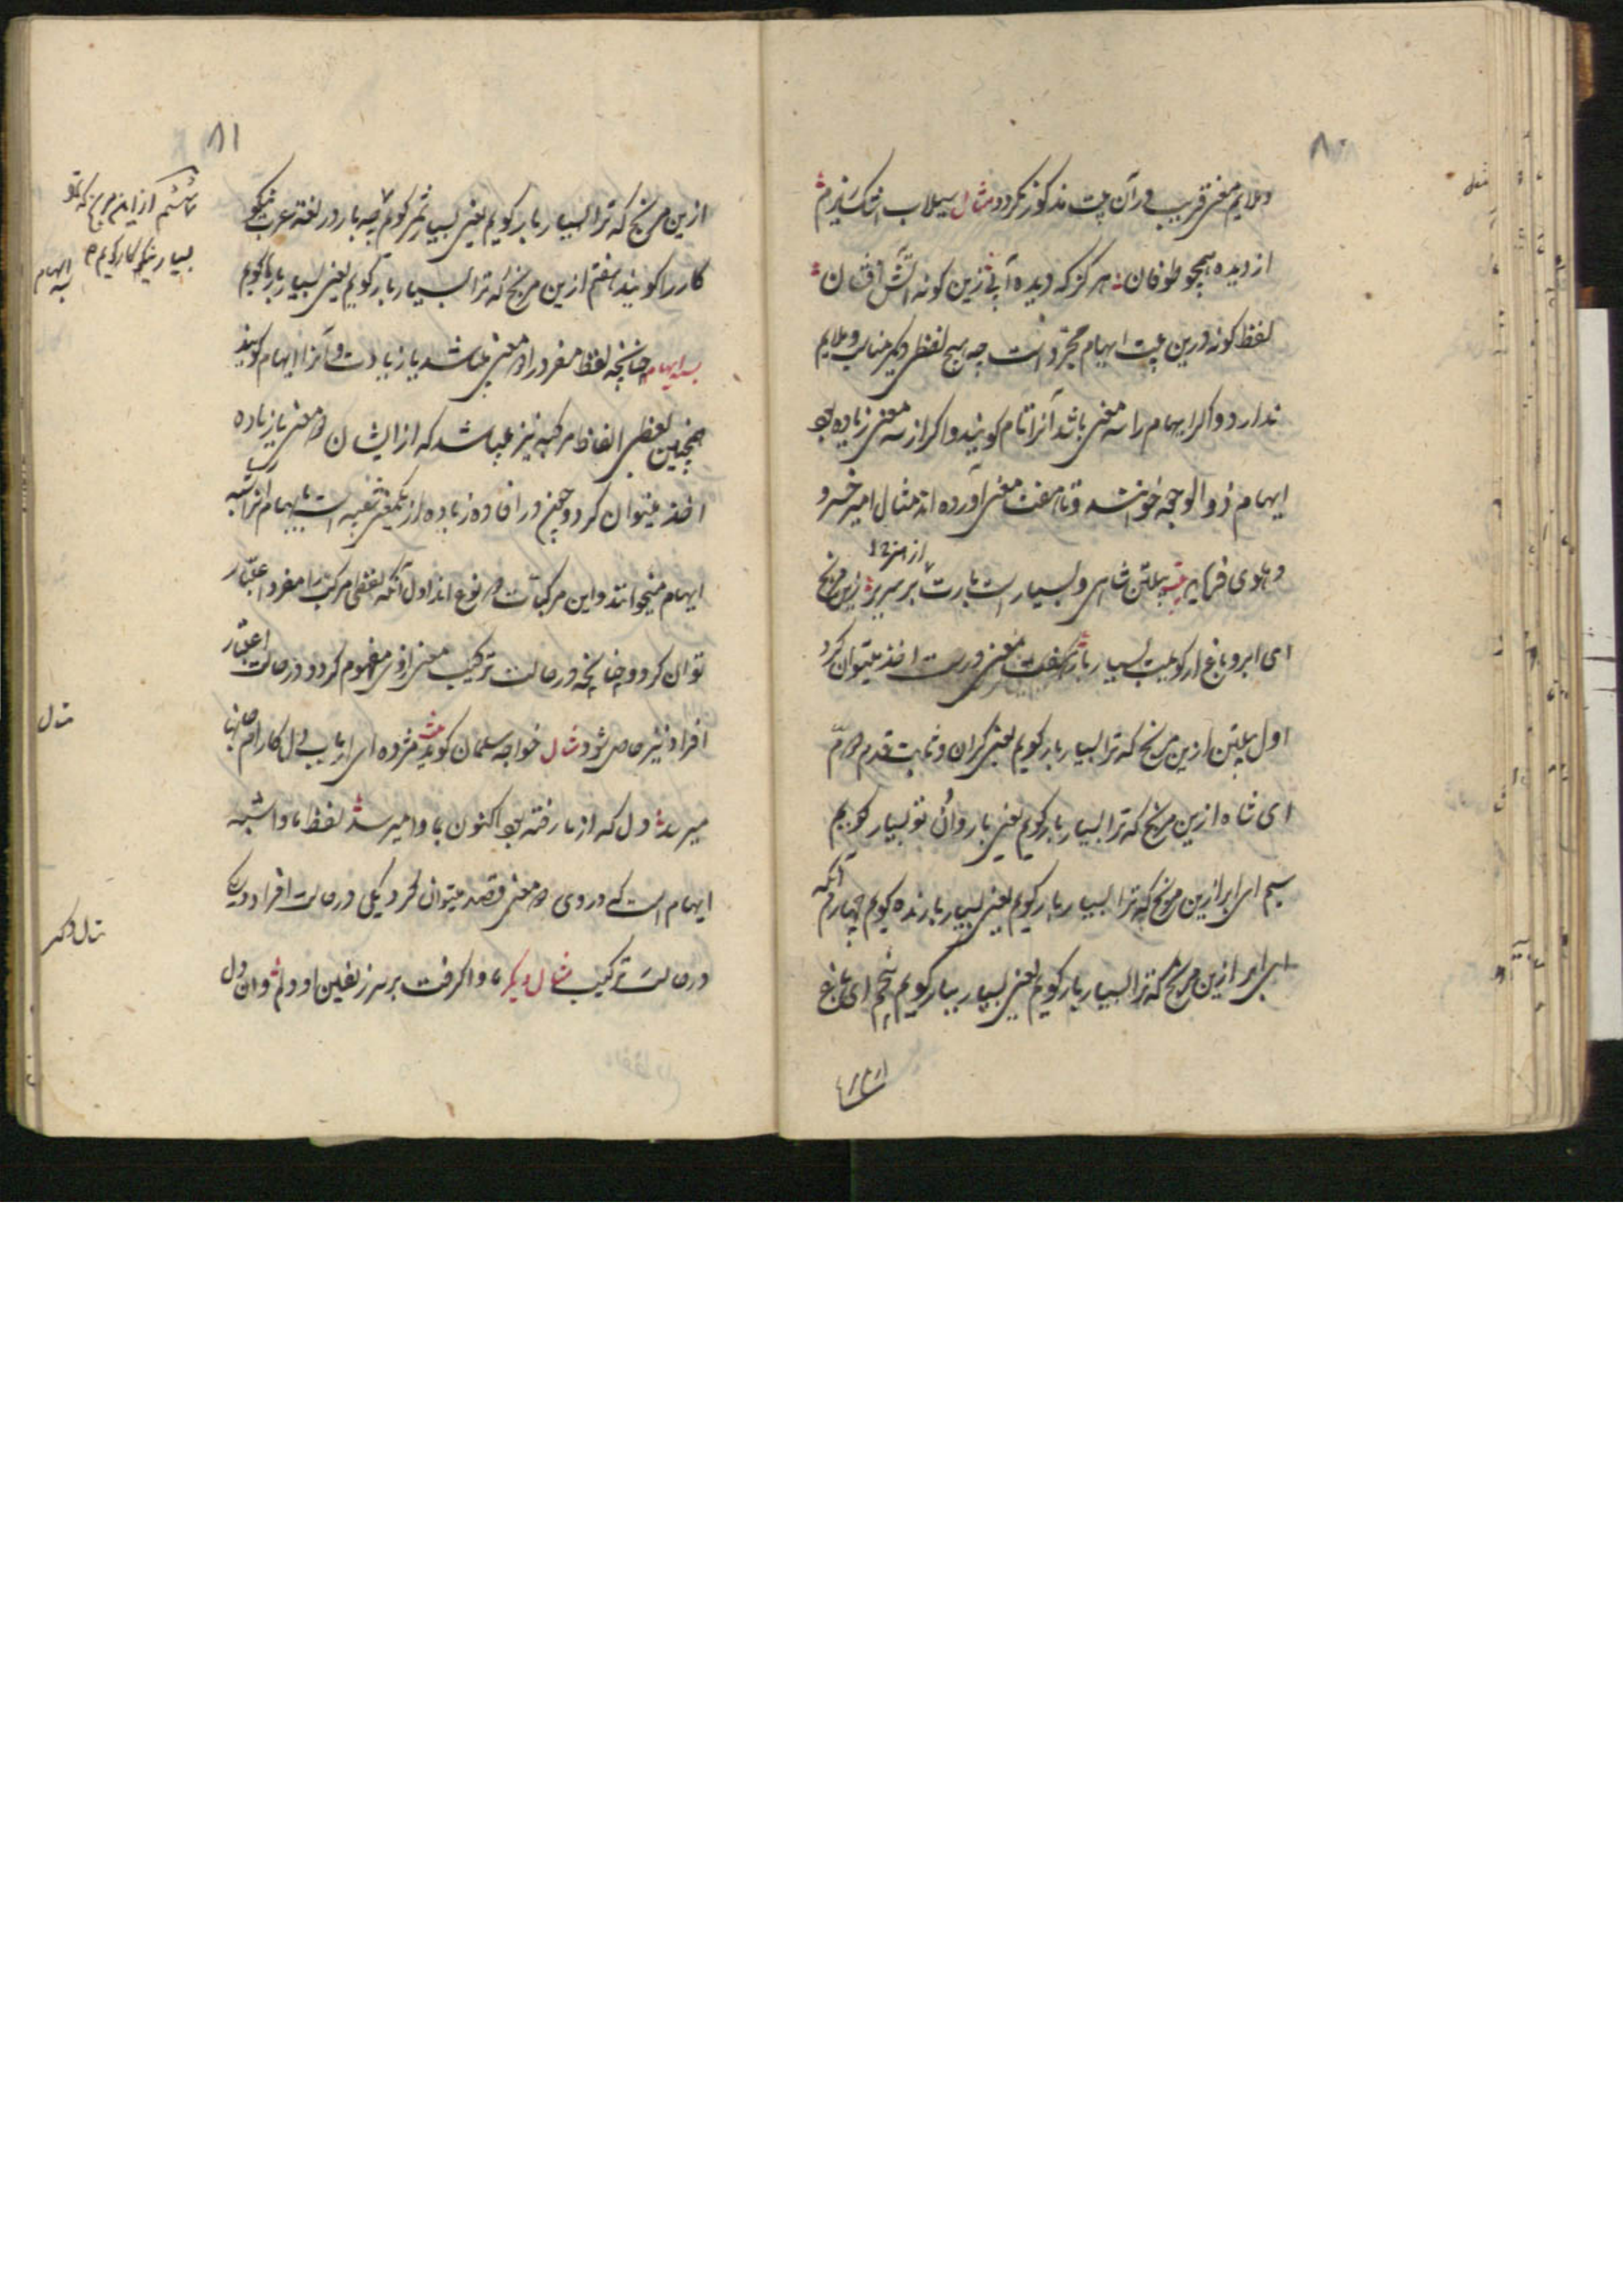 ۸۰
مثل
وملایم معنی قریب درآن بیت مذکور نکردد مثال سیلاب اشک نیزم
از دیده همچو طوفان هرکز که دیده آبی زین کونه آتش افشان
لفظ کونه درین بیت ایهام مجرد است چه هیچ لفظی دیکر مناسب وملایم
ندارد واکر ایهام را سه معنی باشد آنرا تام کویند واکر از سه معنی زیاده بود
ایهام ذوالوجوه خوانند وتا هفت معنی آورده اند مثال امیر خسرو
دهلوی فرماید پیلتن شاهی و بسیار است بارت بر سریر زین مرنج
ای ابر و باغ ار کویمت بسیار بار هفت معنی درست اخذ میتوان کرد
اول پیلتن ازین مرنج که ترا بسیار بار کویم یعنی کران و ثابت قدم دوم
ای شاه ازین مرنج که ترا بسیار بار کویم یعنی بار وان تو بسیار کویم
سیم ای ابر ازین مرنج که ترا بسیار بار کویم یعنی بسیار بارنده کویم چهارم آنکه
ای ابر ازین مرنج که ترا بسیار بار کویم یعنی بسیار بسیار کویم پنجم ای باغ
ازین
۸۱
ازین مرنج که ترا بسیار بار کویم یعنی بسیار ثمر کویم چه بار در لغة عرب نیکو
کار را کویند هفتم ازین مرنج که ترا بسیار بار کویم یعنی بسیار بار کویم
شبه ایهام چنانچه لفظ مفرد را دو معنی میباشد یا زیادت وآنرا ایهام کویند
همچنین بعضی الفاظ مرکبه نیز میباشد که از ایشان دو معنی یا زیاده
اخذ میتوان کرد و چون در افاده زیاده از یکمعنی شبیه است بایهام آنرا شبه
ایهام میخوانند واین مرکبات دو نوع اند اول آنکه لفظی مرکب را مفرد اعتبار
توان کرد و چنانچه در حالت ترکیب معنی ازو مفهوم کردد و در حالت اعتبار
افراد نیز حاصل شود مثال خواجه سلمان کوید مژده ای ارباب دل کارام جانها
میرسد دل که از ما رفته بود اکنون بما وا میرسد لفظ ما وا شبه
ایهام است که در وی دو معنی قصد میتوان کرد یکی در حالت افراد و دیکر
در حالت ترکیب مثال دیکر ماوا کرفت بر سر زلفین او دلم وان دل
ششم ازین مرنج که ترا
بسیار نیکو کار کویم
شبه ایهام
مثال
مثال دکر